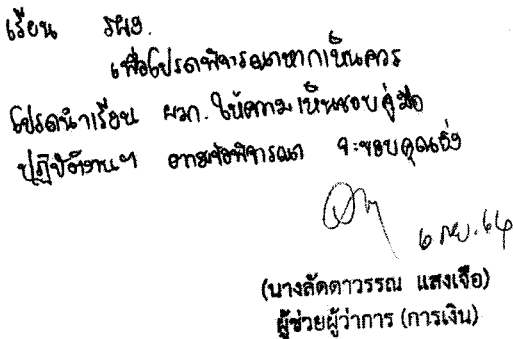 เรียน รผง.
เพื่อโปรดพิจารณาหากเห็นควร
โปรดนำเรียน ผวก. ให้ความเห็นชอบคู่มือ
ปฏิบัติงานฯ ตามข้อพิจารณา จะขอบคุณยิ่ง
๖ กย. 64
(นางลัดดาวรรณ แสงเจือ)
ผู้ช่วยผู้ว่าการ (การเงิน)